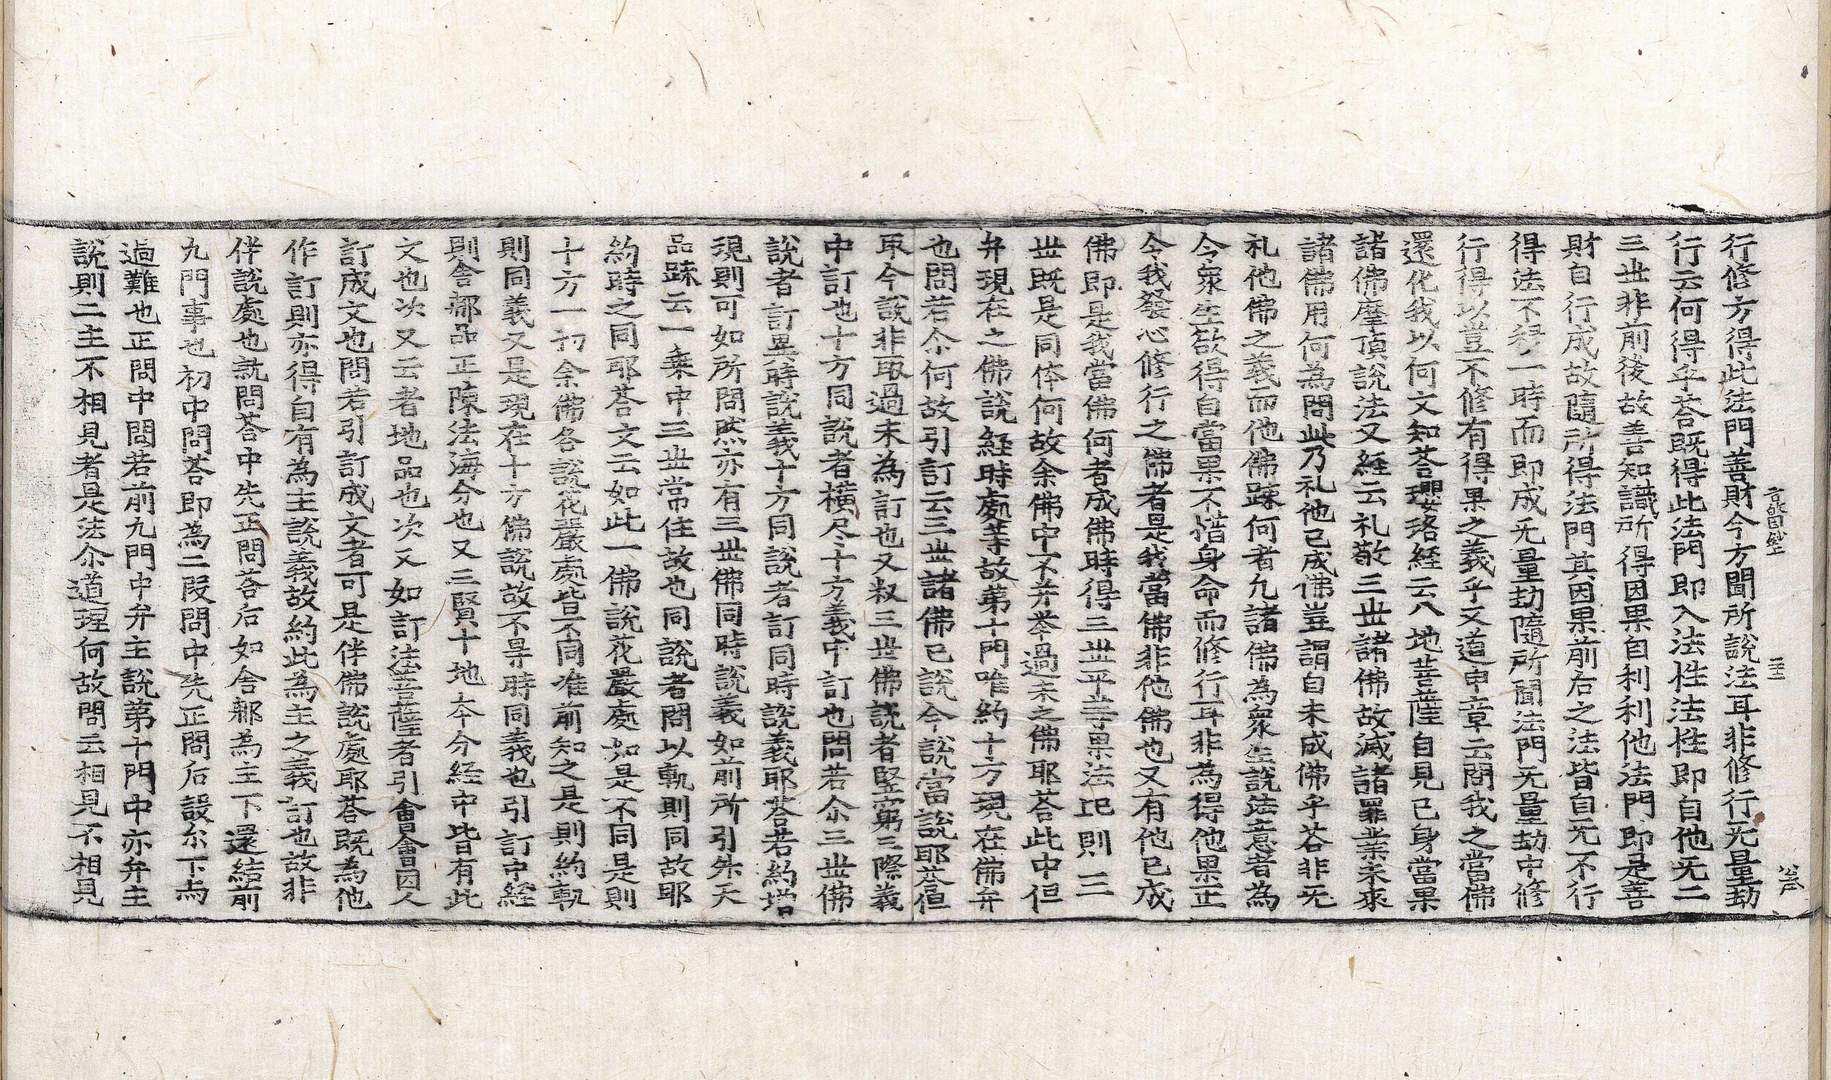 行修方得此法門善財今方聞所說法耳非修行无量劫
行云何得乎荅旣得此法門即入法性法性即自他无二
三世非前後故善知識所得因果自利利他法門即是善
財自行成故隨所得法門其因果前后之法皆自无不行
得法不移一時而即成无量劫隨所聞法門无量劫中修
行得以豈不修有得果之義乎又道申章云問我之當佛
還化我以何文知荅瓔珞經云八地菩薩自見己身當果
諸佛摩頂說法又經云礼敬三世諸佛故滅諸罪業未來
諸佛用何爲問此乃礼他已成佛豈謂自未成佛乎荅非无
礼他佛之義而他佛踈何者九諸佛爲衆生說法意者爲
令衆生欲得自當果不惜身命而修行耳非爲得他果正
令我發心修行之佛者是我當佛非他佛也又有他已成
佛即是我當佛何者成佛時得三世平等果法已則三
世旣是同体何故余佛中不并举過未之佛耶荅此中但
弁現在之佛說經時處等故第十門唯約十方現在佛弁
也問若尒何故引訂云三世諸佛已說今說當說耶荅但
取今說非取過未爲訂也又叔三世佛說者竪窮三際義
中訂也十方同說者橫尽十方義中訂也問若尒三世佛
說者訂異時說義十方同說者訂同時說義耶荅若約增
現則可如所問然亦有三世佛同時說義如前所引朱天
品踈云一乗中三世常住故也同說者問以軌則同故耶
約時之同耶荅文云如此一佛說花嚴處如是不同是則
十方一切余佛各說花嚴處皆不同准前知之是則約軌
則同義又是現在十方佛說故不㝵時同義也引訂中經
則舍那品正陳法海分也又三賢十地夲分經中皆有此
文也次又云者地品也次又如訂法菩薩者引會會因人
訂成文也問若引訂成文者可是伴佛說處耶荅旣爲他
作訂則亦得自有爲主說義故約此爲主之義訂也故非
伴說處也就問荅中先正問荅后如舍那爲主下還結前
九門事也初中問荅即爲二段問中先正問后設尒下為
過難也正問中問若前九門中弁主說第十門中亦弁主
說則二主不相見者是法尒道理何故問云相見不相見